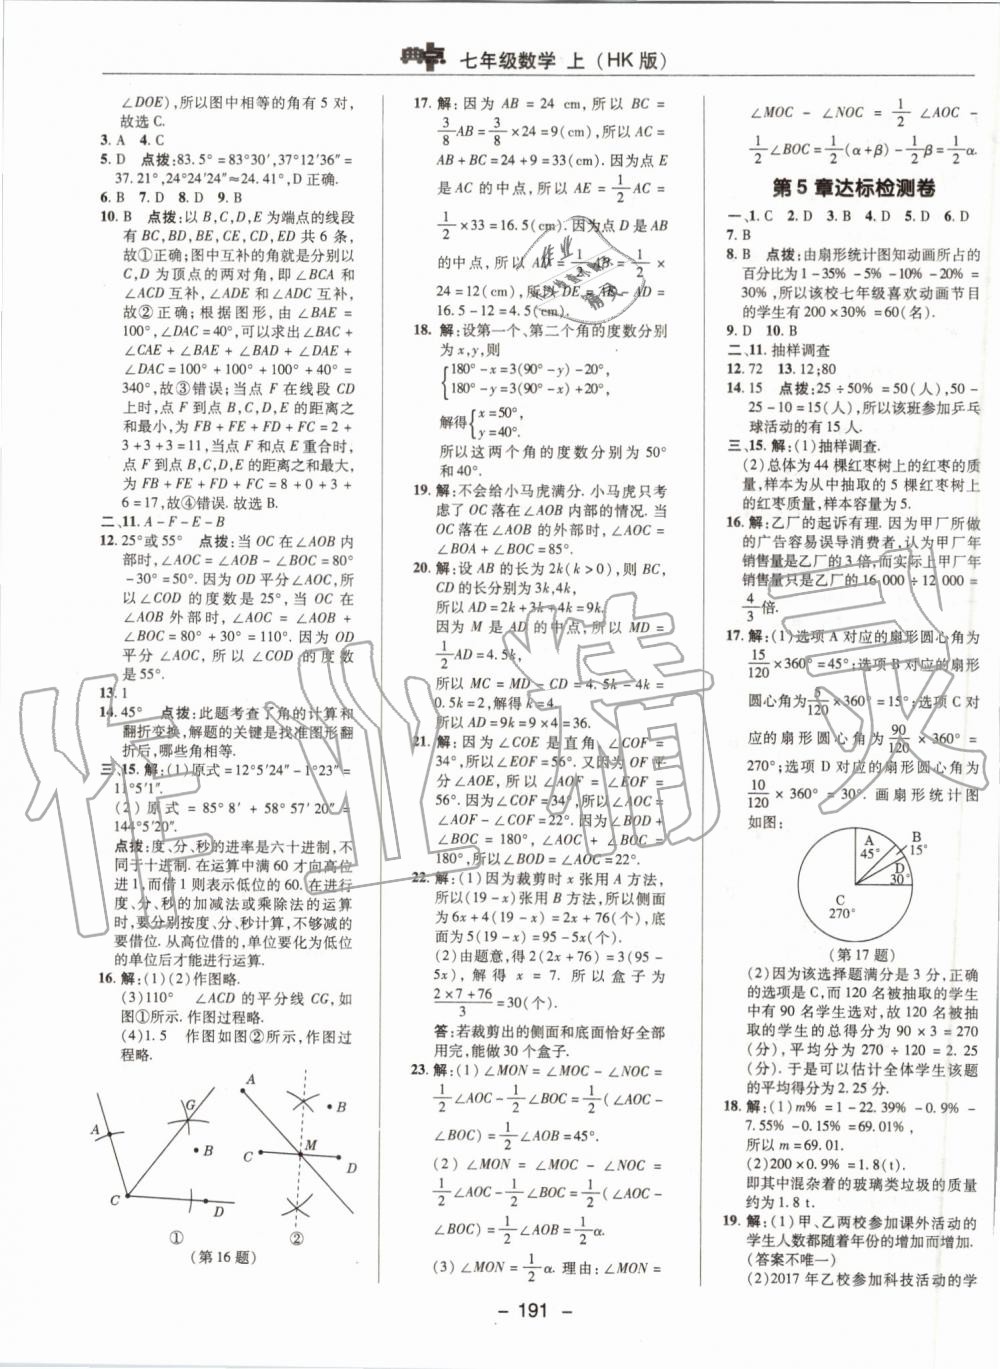 典点 七年级数学 上(HK版)
∠DOE),所以图中相等的角有5对,
故选C.
3. A 4. C
5. D 点拨:83.5°=83°30′,37°12′36″=
37.21°,24°24′24″≈24.41°,D正确.
6. B 7. D 8. D 9. B
10. B 点拨:以B,C,D,E为端点的线段
有BC,BD,BE,CD,CE,DE共6条,
故①正确;图中互补的角就是分别以
C,D为顶点的两对角,即∠BCA和
∠ACD互补,∠ADE和∠ADC互补,
故②正确;根据图形,由∠BAE=
100°,∠DAC=40°,可以求出∠BAC+
∠CAE+∠BAE+∠BAD+∠DAE+
∠DAC=100°+100°+100°+40°=
340°,故③错误;当点F在线段CD
上时,点F到点B,C,D,E的距离之
和最小,为FB+FE+FD+FC=2+
3+3+3=11,当点F和点E重合时,
点F到点B,C,D,E的距离之和最大,
为FB+FE+FD+FC=8+0+3+
6=17,故④错误.故选B.
二、11. A-F-E-B
12. 25°或55° 点拨:当OC在∠AOB内
部时,∠AOC=∠AOB-∠BOC=80°
-30°=50°.因为OD平分∠AOC,所
以∠COD的度数是25°,当OC在
∠AOB外部时,∠AOC=∠AOB+
∠BOC=80°+30°=110°.因为OD
平分∠AOC,所以∠COD的度数
是55°.
13. 1
14. 45° 点拨:此题考查了角的计算和
翻折变换,解题的关键是找准图形翻
折后,哪些角相等.
三、15. 解:(1)原式=12°5′24″-1°23″=
11°5′1″.
(2)原式=85°8′+58°57′20″=
144°5′20″.
点拨:度、分、秒的进率是六十进制,不
同于十进制.在运算中满60才向高位
进1,而借1则表示低位的60.在进行
度、分、秒的加减法或乘除法的运算
时,要分别按度、分、秒计算,不够减的
要借位.从高位借的,单位要化为低位
的单位后才能进行运算.
16. 解:(1)(2)作图略.
(3)110° ∠ACD的平分线CG,如
图①所示.作图过程略.
(4)1.5 作图如图②所示,作图过
程略.
A G B C D
①
A B C M D
②
(第16题)
17. 解:因为AB=24 cm,所以BC=
3/8AB=3/8×24=9(cm),所以AC=
AB+BC=24+9=33(cm).因为点E
是AC的中点,所以AE=1/2AC=
1/2×33=16.5(cm).因为点D是AB
的中点,所以AD=1/2AB=1/2×
24=12(cm),所以DE=AE-AD=
16.5-12=4.5(cm).
18. 解:设第一个、第二个角的度数分别
为x,y,则
180°-x=3(90°-y)-20°,
180°-y=3(90°-x)+20°,
解得 x=50°,
y=40°.
所以这两个角的度数分别为50°
和40°.
19. 解:不会给小马虎满分.小马虎只考
虑了OC落在∠AOB内部的情况.当
OC落在∠AOB的外部时,∠AOC=
∠BOA+∠BOC=85°.
20. 解:设AB的长为2k(k>0),则BC,
CD的长分别为3k,4k,
所以AD=2k+3k+4k=9k.
因为M是AD的中点,所以MD=
1/2AD=4.5k,
所以MC=MD-CD=4.5k-4k=
0.5k=2,解得k=4.
所以AD=9k=9×4=36.
21. 解:因为∠COE是直角,∠COF=
34°,所以∠EOF=56°.又因为OF平
分∠AOE,所以∠AOF=∠EOF=
56°.因为∠COF=34°,所以∠AOC=
∠AOF-∠COF=22°.因为∠BOD+
∠BOC=180°,∠AOC+∠BOC=
180°,所以∠BOD=∠AOC=22°.
22. 解:(1)因为裁剪时x张用A方法,
所以(19-x)张用B方法,所以侧面
为6x+4(19-x)=2x+76(个),底
面为5(19-x)=95-5x(个).
(2)由题意,得2(2x+76)=3(95-
5x),解得x=7.所以盒子为
(2×7+76)/3=30(个).
答:若裁剪出的侧面和底面恰好全部
用完,能做30个盒子.
23. 解:(1)∠MON=∠MOC-∠NOC=
1/2∠AOC-1/2∠BOC=1/2(∠AOC-
∠BOC)=1/2∠AOB=45°.
(2)∠MON=∠MOC-∠NOC=
1/2∠AOC-1/2∠BOC=1/2(∠AOC-
∠BOC)=1/2∠AOB=1/2α.
(3)∠MON=1/2α.理由:∠MON=
∠MOC-∠NOC=1/2∠AOC-
1/2∠BOC=1/2(α+β)-1/2β=1/2α.
第5章达标检测卷
一、1. C 2. D 3. B 4. D 5. D 6. D
7. B
8. B 点拨:由扇形统计图知动画所占的
百分比为1-35%-5%-10%-20%=
30%,所以该校七年级喜欢动画节目
的学生有200×30%=60(名).
9. D 10. B
二、11. 抽样调查
12. 72 13. 12;80
14. 15 点拨:25÷50%=50(人),50-
25-10=15(人),所以该班参加乒乓
球活动的有15人.
三、15. 解:(1)抽样调查.
(2)总体为44棵红枣树上的红枣的质
量,样本为从中抽取的5棵红枣树上
的红枣质量,样本容量为5.
16. 解:乙厂的起诉有理.因为甲厂所做
的广告容易误导消费者,认为甲厂年
销售量是乙厂的3倍,而实际上甲厂年
销售量只是乙厂的16 000÷12 000=
4/3倍.
17. 解:(1)选项A对应的扇形圆心角为
15/120×360°=45°;选项B对应的扇形
圆心角为5/120×360°=15°;选项C对
应的扇形圆心角为90/120×360°=
270°;选项D对应的扇形圆心角为
10/120×360°=30°.画扇形统计图
如图:
A 45° B 15° D 30° C 270°
(第17题)
(2)因为该选择题满分是3分,正确
的选项是C,而120名被抽取的学生
中有90名学生选对,故120名被抽
取的学生的总得分为90×3=270
(分),平均分为270÷120=2.25
(分).于是可以估计全体学生该题
的平均得分为2.25分.
18. 解:(1)m%=1-22.39%-0.9%-
7.55%-0.15%=69.01%,
所以m=69.01.
(2)200×0.9%=1.8(t).
即其中混杂着的玻璃类垃圾的质量
约为1.8 t.
19. 解:(1)甲、乙两校参加课外活动的
学生人数都随着年份的增加而增加.
(答案不唯一)
(2)2017年乙校参加科技活动的学
- 191 -
作业精灵